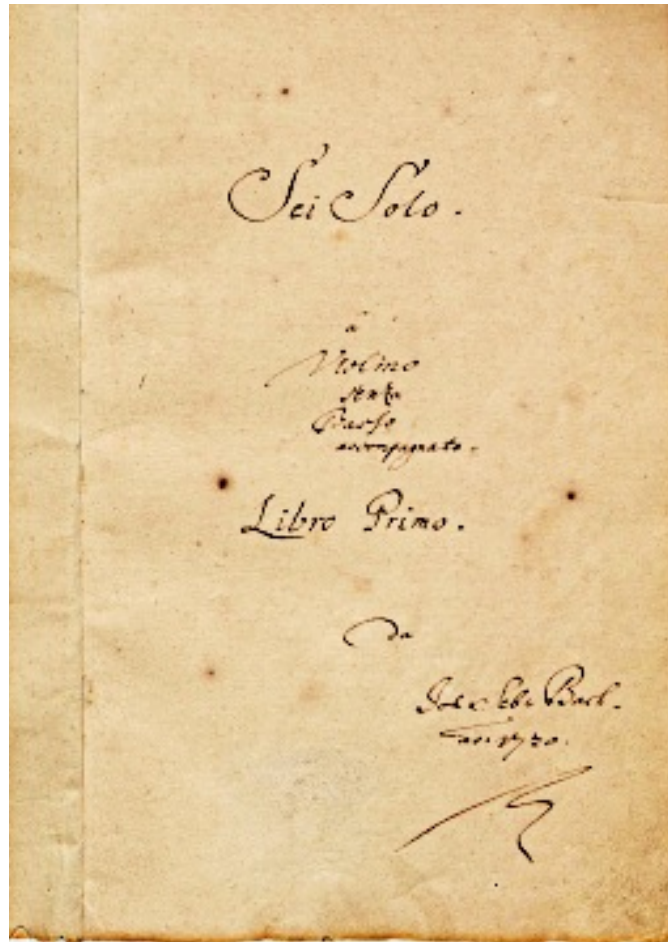 Sei Solo.
â
Violino
senza
Basso
accompagnato.
Libro Primo.
Da
Joh: Seb: Bach.
ao. 1720.